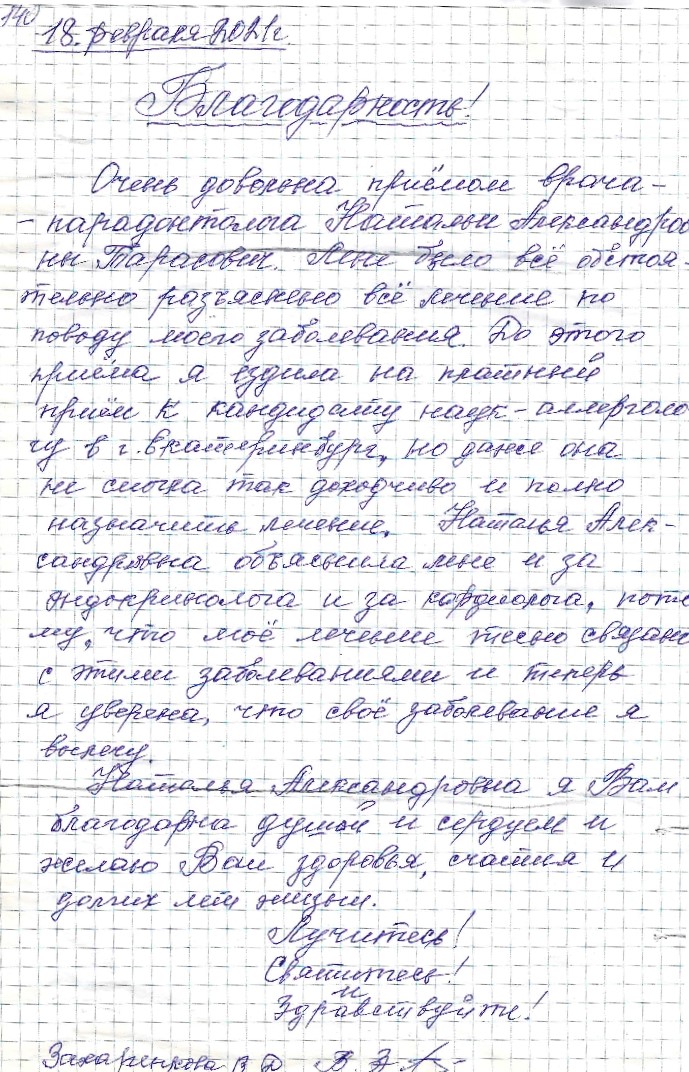 140
18. февраля 2021г.
Благодарность!
Очень довольна приёмом врача-
- парадонтолога Натальи Александров
ны Тарасович. Мне было всё обстоя-
тельно разъяснено всё лечение по
поводу моего заболевания. До этого
приёма я ездила на платный
приём к кандидату наук - аллерголо
гу в г. Екатеринбург, но даже она
не смогла так доходчиво и полно
назначить лечение. Наталья Алек-
сандровна объяснила мне и за
эндокринолога и за кардиолога, пото
му, что моё лечение тесно связано
с этими заболеваниями и теперь
я уверена, что своё заболевание я
вылечу.
Наталья Александровна я Вам
благодарна душой и сердцем и
желаю Вам здоровья, счастия и
долгих лет жизни.
Лучитесь!
Святитесь!
и
Здравствуйте!
Захаренкова В Д